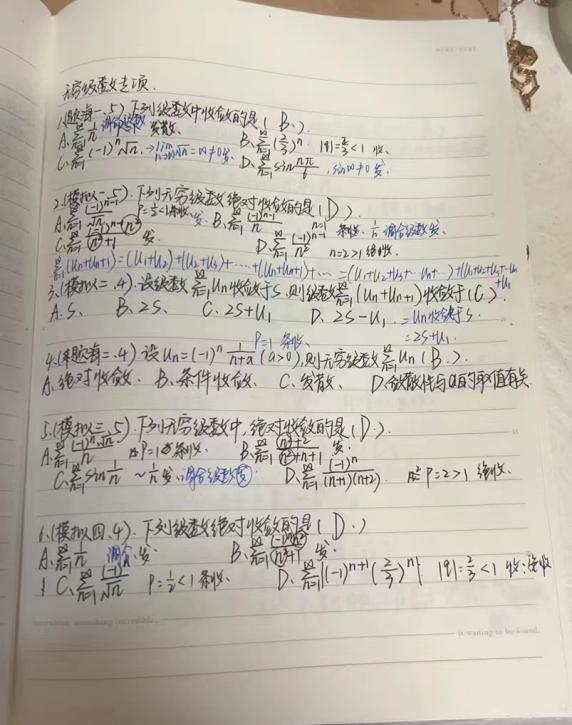 无穷级数专项.
下列级数中收敛的是( B.).
A. ∑_{n=1}^∞ 1/n 调和级数 发散. B. ∑_{n=1}^∞ (2/3)^n |q|=2/3<1 收.
C. ∑_{n=1}^∞ (-1)^n √n → lim_{n→∞} √n = ∞ ≠0 发. D. ∑_{n=1}^∞ sin nπ/6 , sin∞≠0 发.
2.(模拟一、5). 下列无穷级数绝对收敛的是( D ).
A. ∑_{n=1}^∞ (-1)^{n-1}/√n P=1/2<1 条收. B. ∑_{n=1}^∞ (-1)^{n-1}/n 条收. 1/n 调合级数发.
C. 发. D. ∑_{n=1}^∞ (-1)^{n-1}/n² n=2>1 绝收.
∑_{n=1}^∞ (Un+Un+1)=(U1+U2)+(U2+U3)+····+(Un+Un+1)+···
3.(模拟二、4). 设级数 ∑_{n=1}^∞ Un收敛于S, 则级数 ∑_{n=1}^∞ (Un+Un+1)收敛于( C )
A. S、 B. 2S、 C. 2S+U1 D. 2S-U1 . = Un收敛于S.
= 2S+U1.
P=1 条收.
二、4). 设 Un=(-1)^n 1/(n+a) (a>0), 则无穷级数 ∑_{n=1}^∞ Un ( B.).
A. 绝对收敛. B. 条件收敛. C. 发散、 D. 敛散性与a的取值有关
5.(模拟三、5). 下列无穷级数中, 绝对收敛的是( D.).
A. ∑_{n=1}^∞ (-1)^n √n/n P=1 条收. B. ∑_{n=1}^∞ 发.
C. ∑_{n=1}^∞ sin 1/n ~ 1/n 发. 调合级数发. D. ∑_{n=1}^∞ (-1)^n/(n+1)(n+2) . P=2>1 绝收.
6.(模拟四、4). 下列级数绝对收敛的是( D.)
A. ∑_{n=1}^∞ 1/n 调合 发. B. 发.
C. ∑_{n=1}^∞ (-1)^n/√n P=1/2<1 条收. D. ∑_{n=1}^∞ |(-1)^{n+1}(2/3)^n| |q|=2/3<1 收.绝收
is waiting to be found.